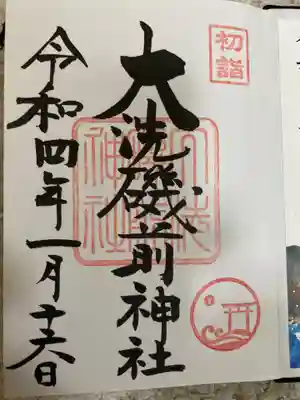 初詣
大洗磯前神社
神社
令和四年一月十六日